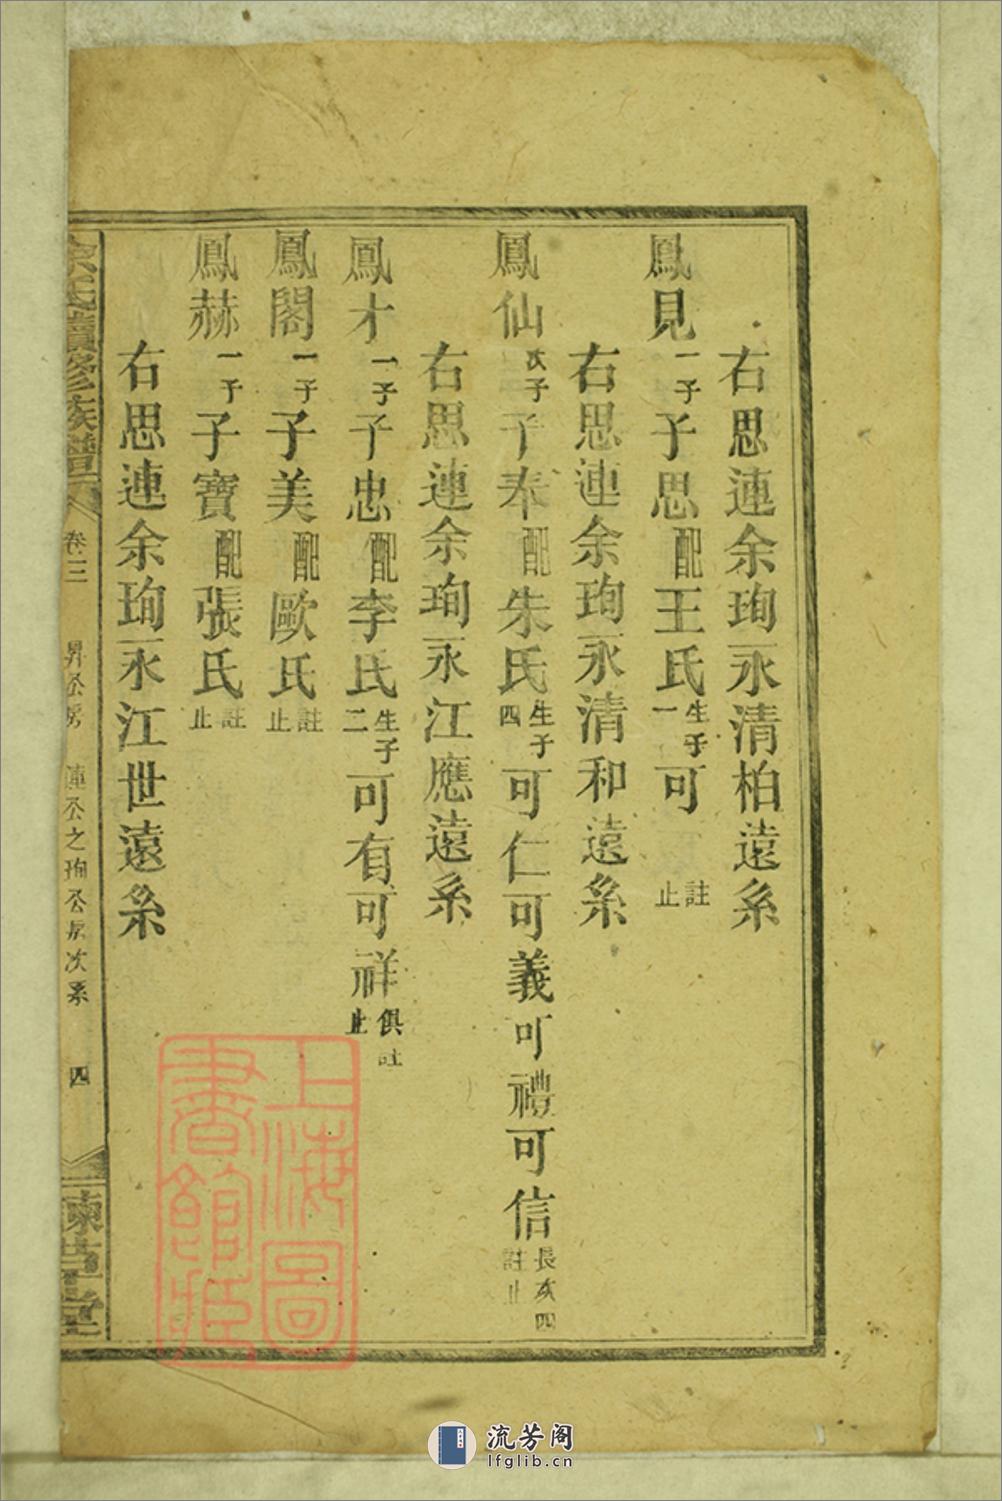 右思連余珣永清柏遠系
鳳見一子子思配王氏生子一可註止
右思連余珣永清和遠系
鳳仙次子子奉配朱氏生子四可仁可義可禮可信長次四註止
右思連余珣永江應遠系
鳳才一子子忠配李氏生子二可有可祥俱註止
鳳閣一子子美配歐氏註止
鳳赫一子子寶配張氏註止
右思連余珣永江世遠系
余氏續修族譜
卷三
昇公房 連公之珣公長次系
四
諫草堂
上海圖書館藏
流芳阁
lfglib.cn